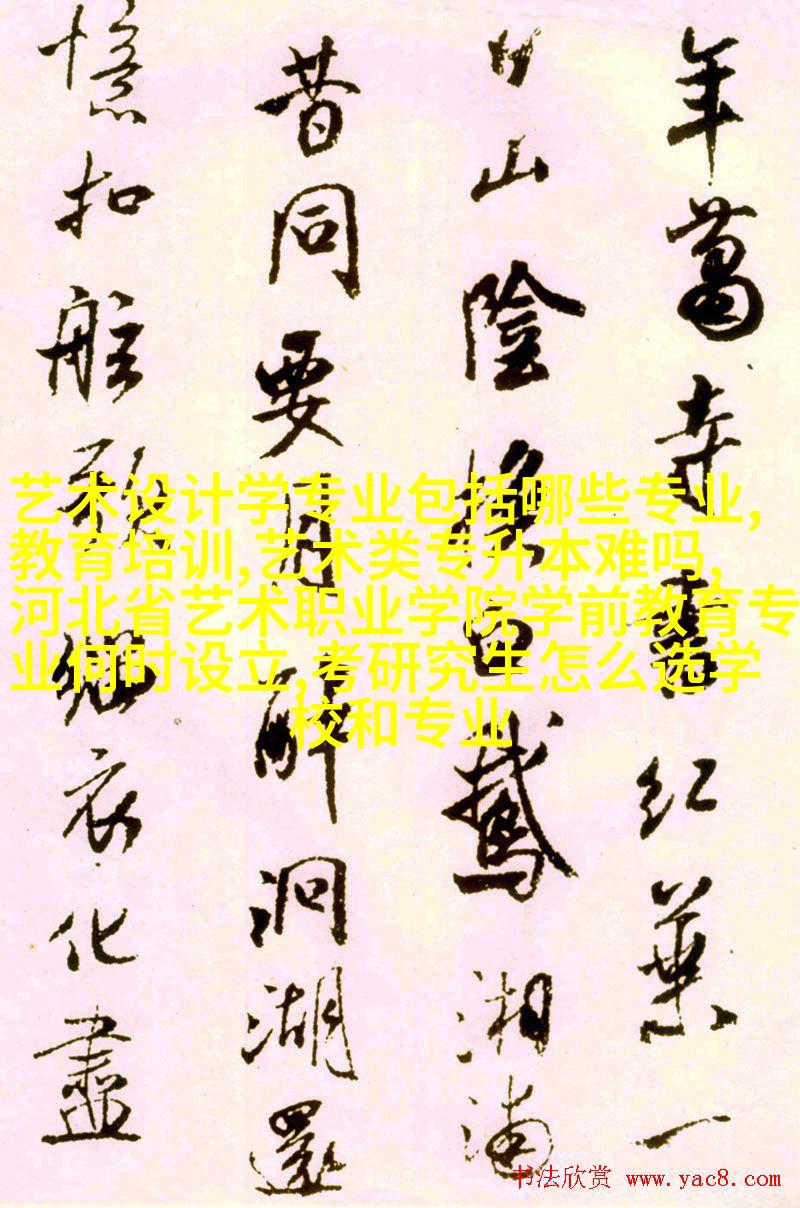 年蕭寺書紅葉一
日山陰換白鵝湘浦
昔同要月醉洞湖還
憶扣舷歌緇衣化盡
艺术设计学专业包括哪些专业,
教育培训,艺术类专升本难吗,
河北省艺术职业学院学前教育专
业何时设立,考研究生怎么选学
校和专业
书法欣赏 www.yac8.com